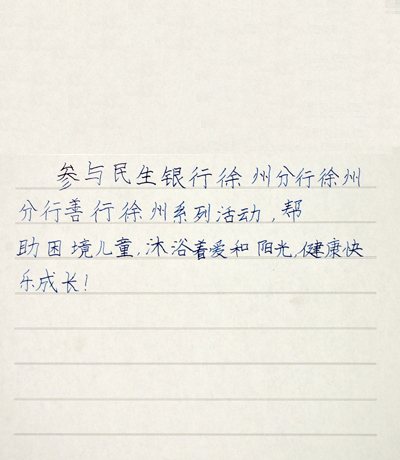 参与民生银行徐州分行徐州
分行善行徐州系列活动,帮
助困境儿童,沐浴着爱和阳光,健康快
乐成长!